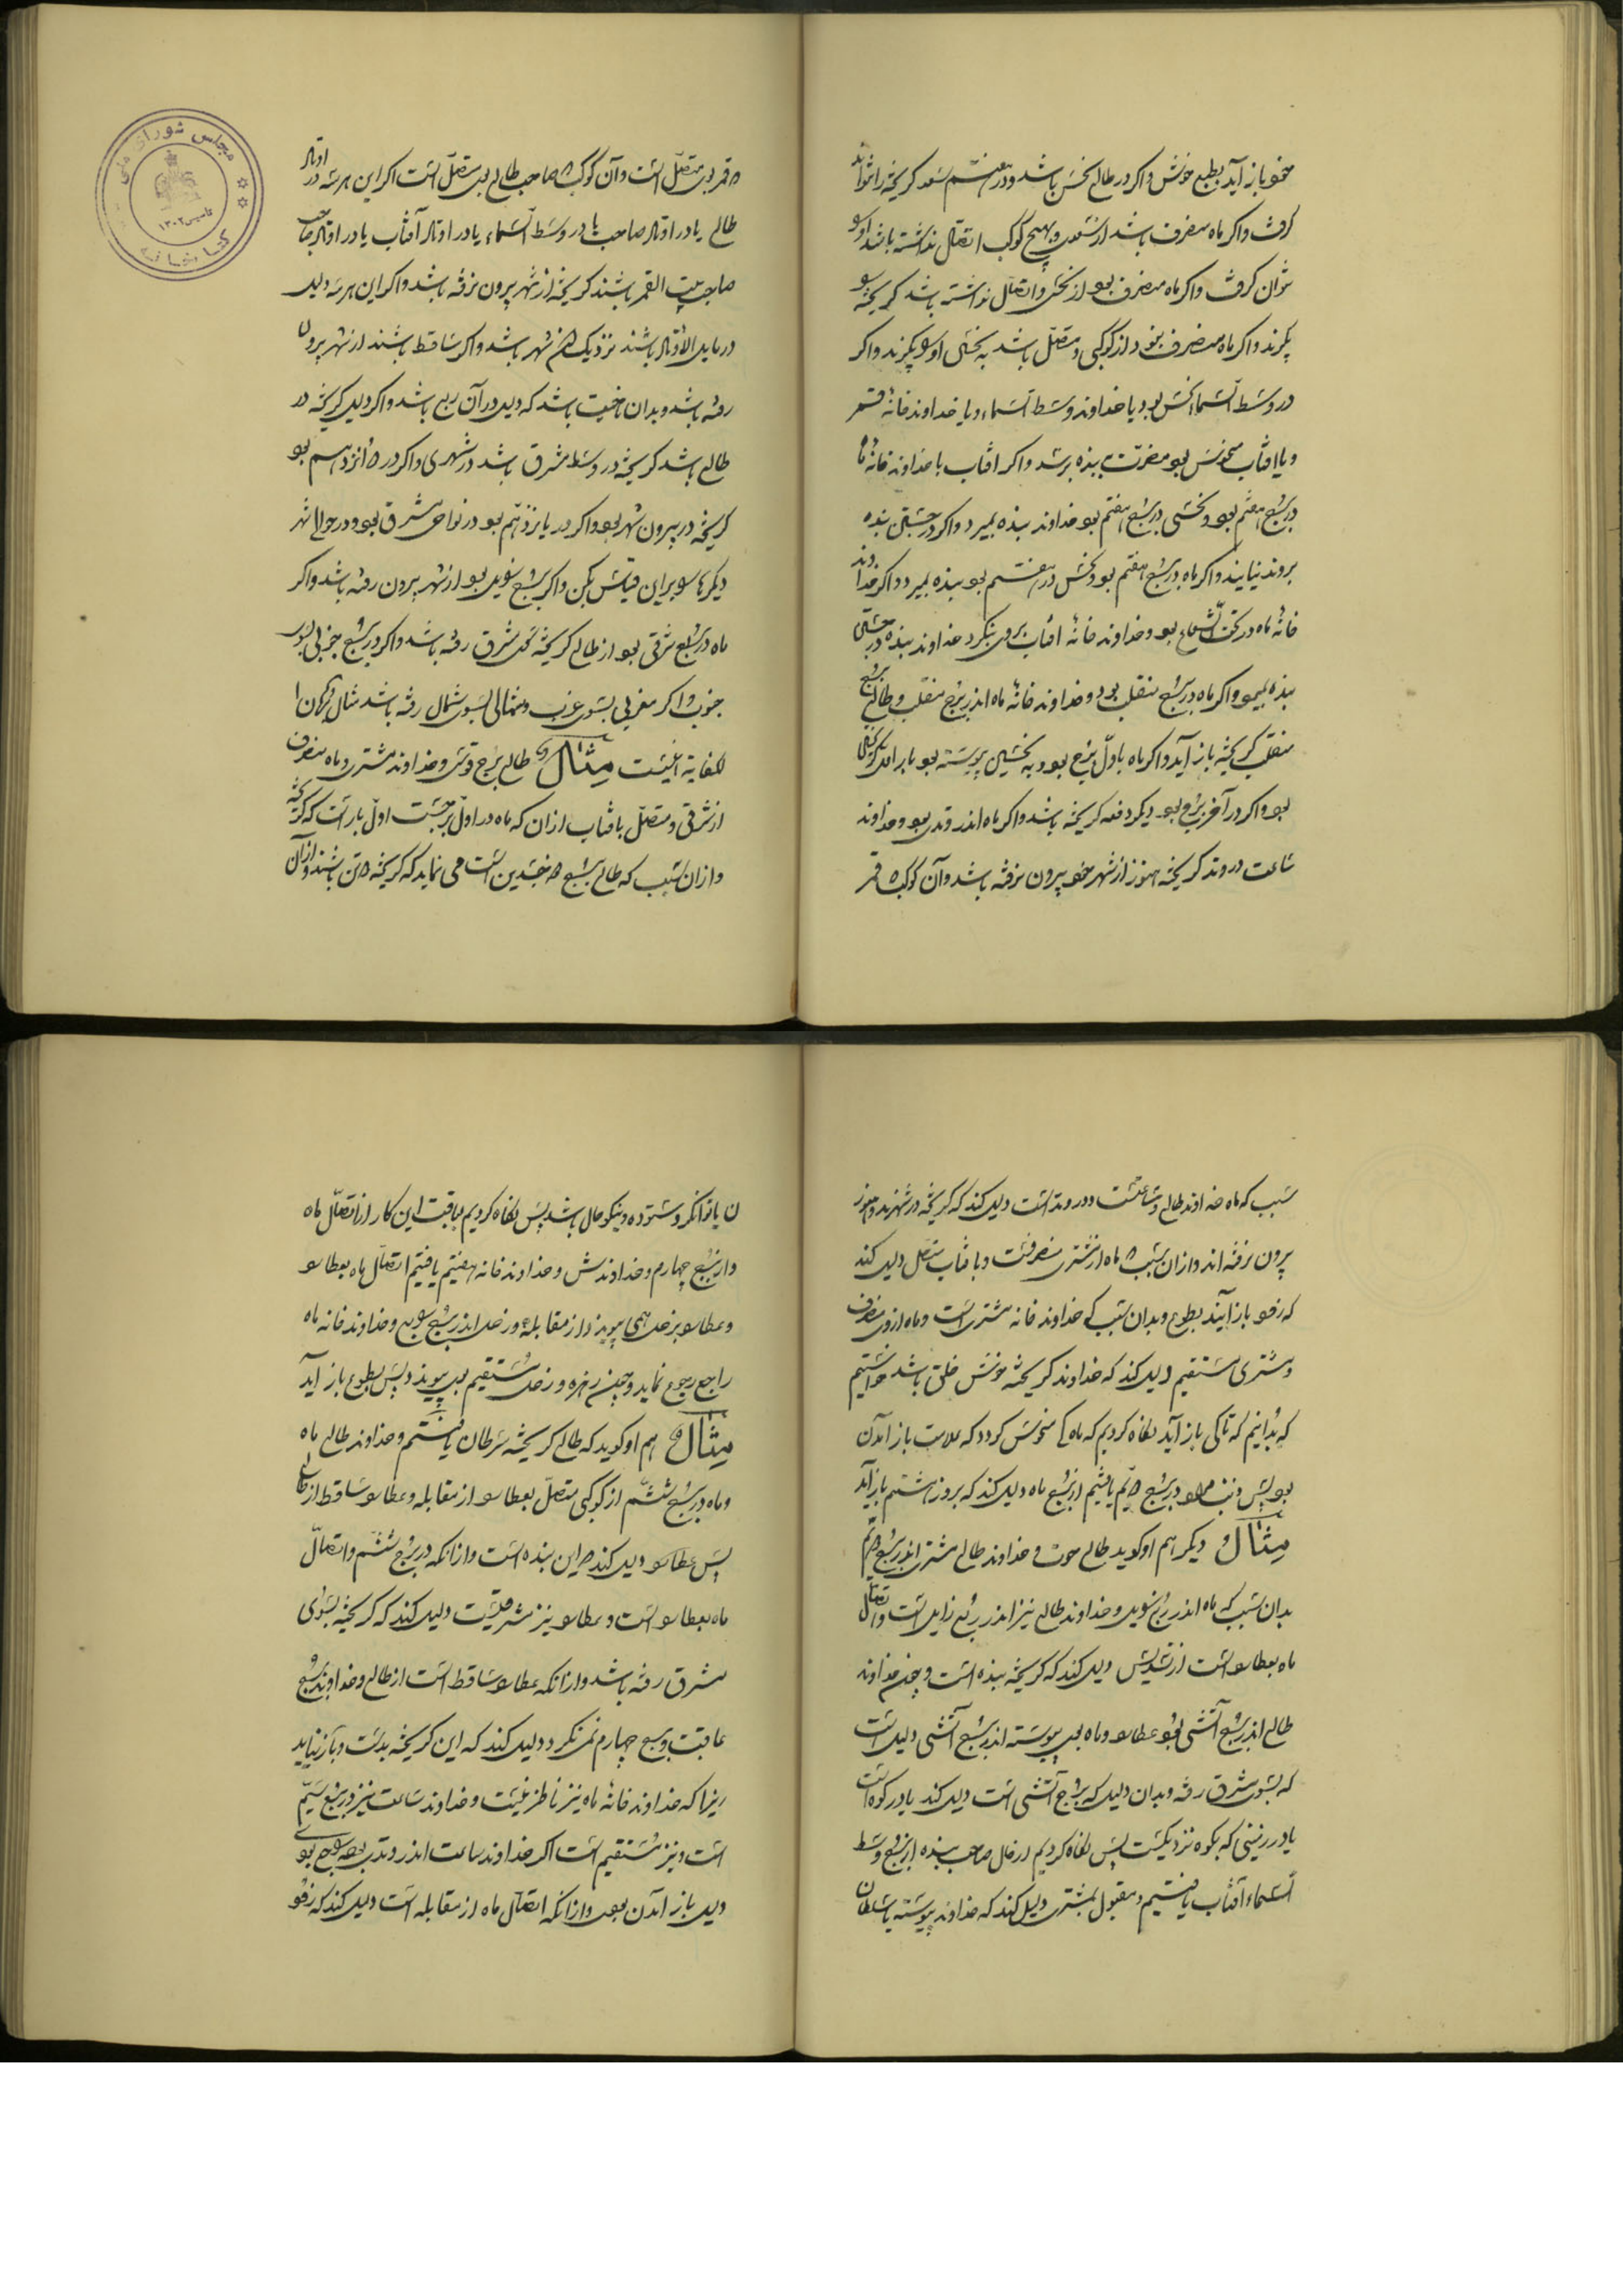 خود باز آید بطبع خوش واکر در طالع نحس باشد ودر هفتم سعد کریخته را نتواند
کرفت واکر ماه منصرف باشد از سعدی وبهیچ کوکب اتصال نداشته باشد او را
توان کرفت واکر ماه منصرف بود از نحس واتصال نداشته باشد کریخته را
بکیرند واکر ماه منصرف بود از کوکبی ومتصل باشد به نحس او را بکیرند واکر
در وسط السماء نحس بود ویا خداوند وسط السماء ویا خداوند خانه قمر
ویا افتاب منحوس بود مضرت ببنده برسد واکر افتاب با خداوند خانه ماه
در برج هفتم بود ونحسی در برج هفتم بود خداوند بنده بمیرد واکر در جستن بنده
بروند نیابند واکر ماه در برج هفتم بود ونحس در هفتم بود بنده بمیرد واکر خداوند
خانه ماه در تحت الشعاع بود وخداوند خانه افتاب بروی نکرد خداوند بنده در جستن
بنده بمیرد واکر ماه در برج منقلب بود وخداوند خانه ماه اندر برج منقلب وطالع برج
منقلب کریخته باز آید واکر ماه باول برج بود وبه نحسی پیوسته بود بار اول
بود واکر در آخر برج بود دیکر دفعه کریخته باشد واکر ماه اندر وتدی بود وخداوند
ساعت در وتد کریخته هنوز از شهر خود بیرون نرفته باشد وآن کوکب که قمر
که قمر بدو متصل است وآن کوکب که صاحب طالع بدو متصل است اکر این هر سه در اوتاد
طالع یا در اوتاد صاحب یا در وسط السماء یا در اوتاد آفتاب یا در اوتاد صاحب
صاحب بیت القمر باشند کریخته از شهر بیرون نرفته باشد واکر این هر سه دلیل
در مایل الاوتاد باشند نزدیک شهر باشد واکر ساقط باشند از شهر بیرون
رفته باشد وبدان ناحیت باشد که دلیل در آن ربع باشد واکر دلیل کریخته در
طالع باشد کریخته در وسط مشرق باشد در شهری واکر در دوانزدهم بود
کریخته در بیرون شهر بود واکر در یازدهم بود در نواحی مشرق بود ودر حوالی شهر
دیکرها را برین قیاس بکن واکر ببرج بود از شهر بیرون رفته باشد واکر
ماه در برج شرقی بود از طالع کریخته سوی شرق رفته باشد واکر در برج جنوبی بسوی
جنوب واکر مغربی بسوی غرب وشمالی بسوی شمال رفته باشد مثال
لکفایه اینست مثال طالع برج قوس وخداوند مشتری وماه منصرف
از شرقی ومتصل بافتاب ازان که ماه در اول برجست اول بار است که کریخته
وازان سبب که طالع برج ذو جسدین است می نماید که کریخته دو تن باشند وازان
سبب که ماه خداوند طالع وساعتست ودر وتد است دلیل کند که کریخته در شهرند وهنوز
بیرون نرفته اند وازان سبب که ماه از مشتری منصرفست وبا فتاب متصل دلیل کند
که زود باز آیند بطوع وبدان سبب که خداوند خانه مشتری است وماه ازوی منصرف
ومشتری مستقیم دلیل کند که خداوند کریخته خوش خلق باشد خواستیم
که بدانیم که تا کی باز آید نکاه کردیم که ماه کی منحوس کردد که علامت باز آمدن
بود پس ذنب در برج دهم یافتیم از برج ماه دلیل کند که بروز هشتم باز آید
مثال دیکر هم او کوید طالع حوت وخداوند طالع مشتری اندر برج دهم
بدان سبب که ماه اندر ربع وخداوند طالع نیز اندر ربع زایل است واتصال
ماه بعطارد است از تسدیس دلیل کند که کریخته بنده است وچون خداوند
طالع اندر برج آتشی بود عطارد وماه بدو پیوسته اندر برج آتشی دلیل است
که بسوی شرق رفته وبدان دلیل که برج آتشی است دلیل کند یا در کوه است
یا در زمینی که بکوه نزدیکست پس نکاه کردیم در حال صاحب بنده از برج وسط
السماء آفتاب یافتیم ومقبول بمشتری دلیل کند که خداوند پیوسته با سلطان
ن یا توانکر وستوده ونیکو حال باشد پس نکاه کردیم عاقبت این کار از اتصال ماه
واز برج چهارم وخداوندش وخداوند خانه هفتم یافتیم اتصال ماه بعطارد
وعطارد بزحل همی پیوندد از مقابله وزحل اندر برج وخداوند خانه ماه
راجع رجوع نماید وچون زهره وزحل مستقیم بدو پیوندد پس بطوع باز آید
مثال هم او کوید که طالع کریخته سرطان یافتیم وخداوند طالع ماه
وماه در برج ششم از کوکبی متصل بعطارد از مقابله وعطارد ساقط از طالع
پس عطارد دلیل کند که این بنده است وازانکه در برج ششم واتصال
ماه بعطارد است وعطارد نیز مشرقیست دلیل کند که کریخته بسوی
مشرق رفته باشد وازانکه عطارد ساقط است از طالع وخداوند برج
عاقبت برج چهارم نمی نکرد دلیل کند که این کریخته بدست وباز نیاید
زیرا که خداوند خانه ماه نیز ناظر نیست وخداوند ساعت نیز در برج سیم
است ونیز مستقیم است اکر خداوند ساعت اندر وتد بودی
دلیل باز آمدن بودی وازانکه اتصال ماه از مقابله است دلیل کند که زود
مجلس شورای ملی
کتابخانه
تاسیس ۱۳۰۲